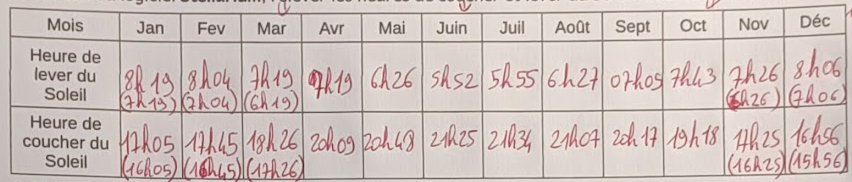 logiciel Stellarium, relever les heures de coucher et lever du
Mois Jan Fev Mar Avr Mai Juin Juil Août Sept Oct Nov Déc
Heure de
lever du
Soleil
8h19 8h04 7h19 7h19 6h26 5h52 5h55 6h27 07h09 7h43 7h26 8h06
(7h19) (7h04) (6h19) (6h26) (7h06)
Heure de
coucher du
Soleil
17h05 17h45 18h26 20h09 20h48 21h25 21h34 21h07 20h17 19h18 17h25 16h56
(16h05) (16h45) (17h26) (16h25) (15h56)